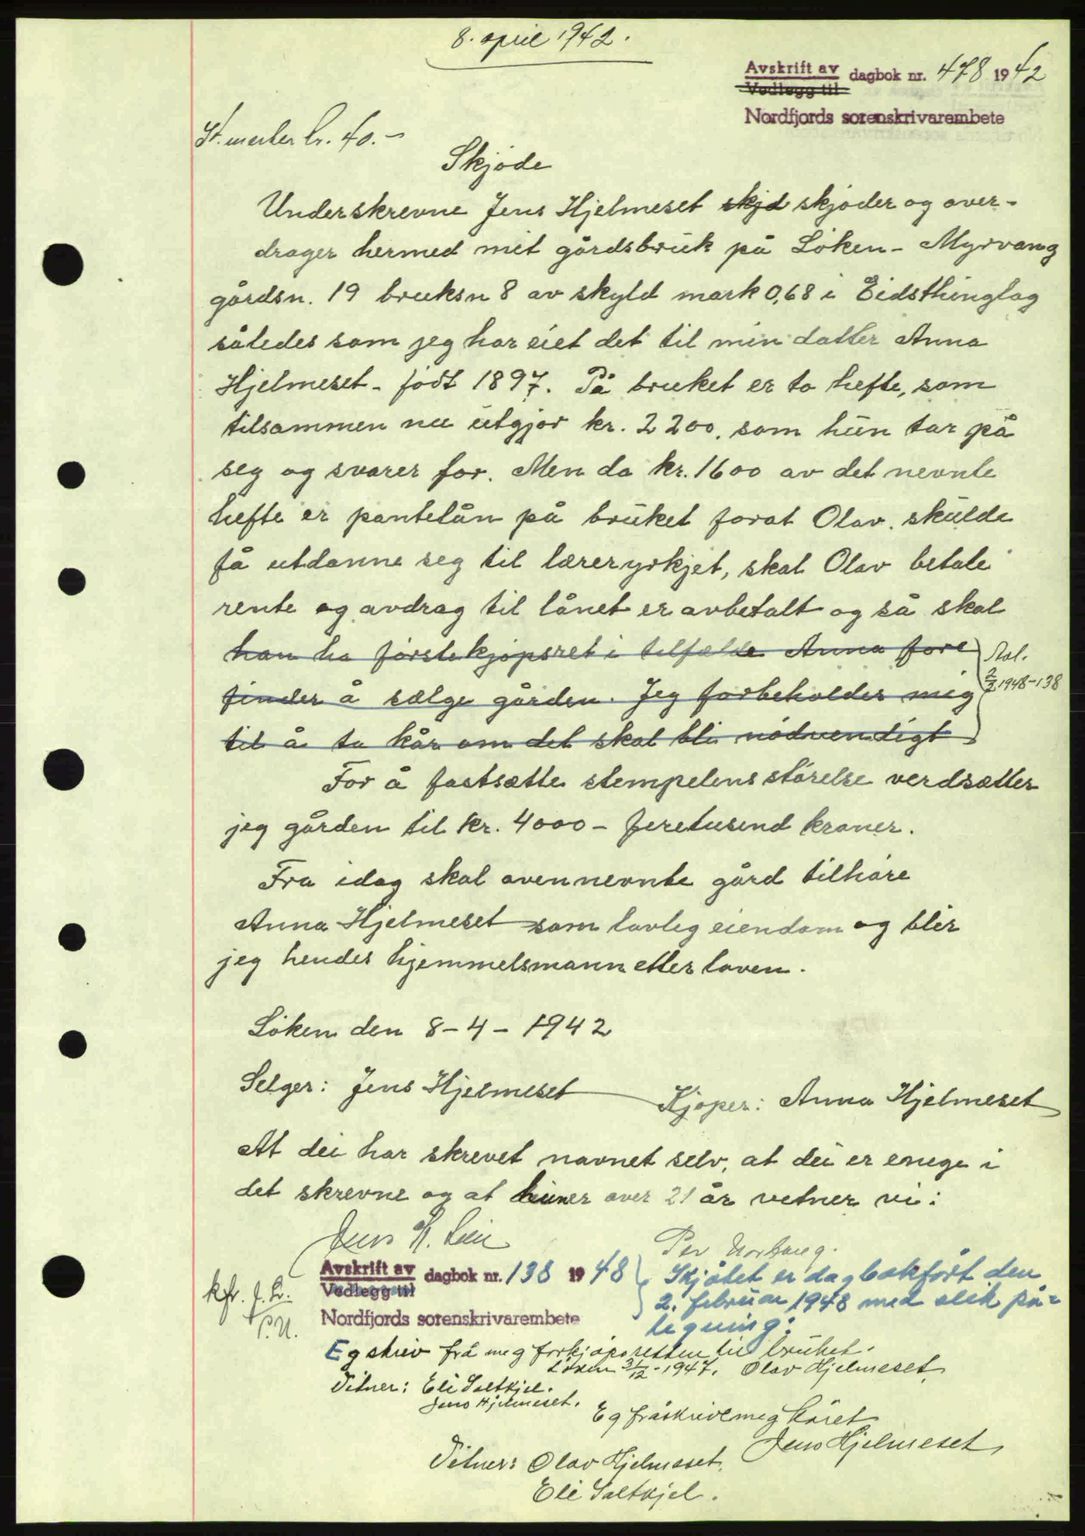 8. april 1942.
Avskrift av dagbok nr. 478 1942
Vedlegg til
Nordfjords sorenskrivarembete
St. merker kr. 40.-
Skjøde
Underskrevne Jens Hjelmeset skjd skjøder og over-
drager hermed mit gårdsbruk på Løken - Myrvang
gårdsn. 19 bruksn 8 av skyld mark 0,68 i Eidsthinglag
således som jeg har eiet det til min datter Anna
Hjelmeset - født 1897. På bruket er to hefte, som
tilsammen nu utgjør kr. 2200, som hun tar på
seg og svarer for. Men da kr. 1600 av det nevnte
hefte er pantelån på bruket forat Olav skulde
få utdanne seg til læreryrkjet, skal Olav betale
rente og avdrag til lånet er avbetalt og så skal
han ha førstekjøpsret i tilfælde Anna fore
finder å sælge gården. Jeg forbeholder mig
til å ta kår om det skal bli nødvendigt
2/2 1948-138
For å fastsætte stempelens størelse verdsætter
jeg gården til kr. 4000 - firetusend kroner.
Fra idag skal ovennevnte gård tilhøre
Anna Hjelmeset som lovleg eiendom og blir
jeg hendes hjemmelsmann etter loven.
Løken den 8-4-1942
Selger: Jens Hjelmeset Kjøper: Anna Hjelmeset
At dei har skrevet navnet selv, at dei er enege i
det skrevne og at hun er over 21 år vetner vi:
Jens H. Lein Per Norhaug.
Avskrift av dagbok nr. 138 1948
Vedlegg til
Nordfjords sorenskrivarembete
kfr. J. L.
P. N.
Skjøtet er dagbokført den
2. februar 1948 med slik på=
tegning:
Eg skriv frå meg forkjøpsretten til bruket.
Løken 31/12-1947. Olav Hjelmeset
Vitner: Eli Saltkjel.
Jens Hjelmeset.
Eg fråskrive meg kåret
Jens Hjelmeset
Vitner: Olav Hjelmeset.
Eli Saltkjel.